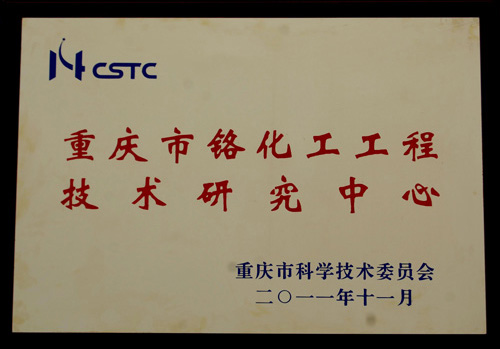 CSTC
重庆市铬化工工程
技术研究中心
重庆市科学技术委员会
二〇一一年十一月